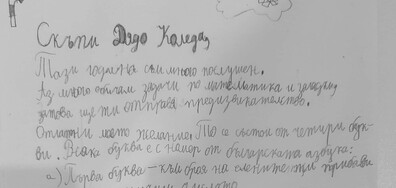 Скъпи Дядо Коледа,
Тази година съм много послушен.
Аз много обичам задачи по математика и
затова ще ти отправя предизвикателство.
Отгатни моето желание. То се състои от четири бук-
ви. Всяка буква е с номер от българската азбука:
а) Първа буква – към броя на елените три прибави